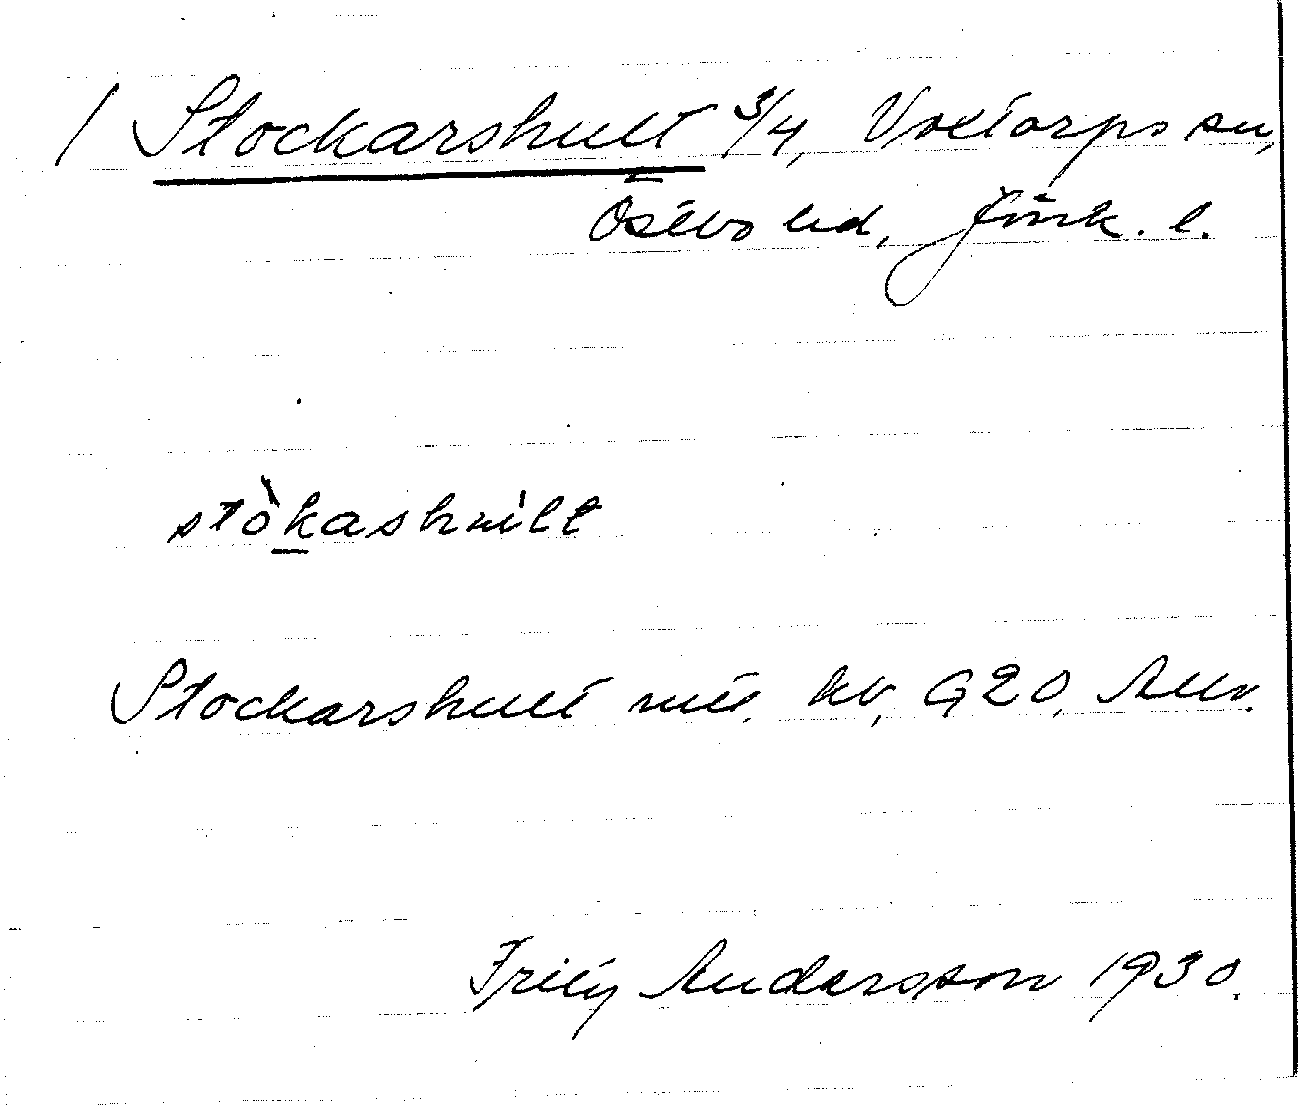 / Stockarshult 3/4, Voxtorps sn,
Östbo hd, Jönk. l.
stòkashùlt
Stockarshult mtl. kv. G20, Allr.
Fritz Andersson 1930.